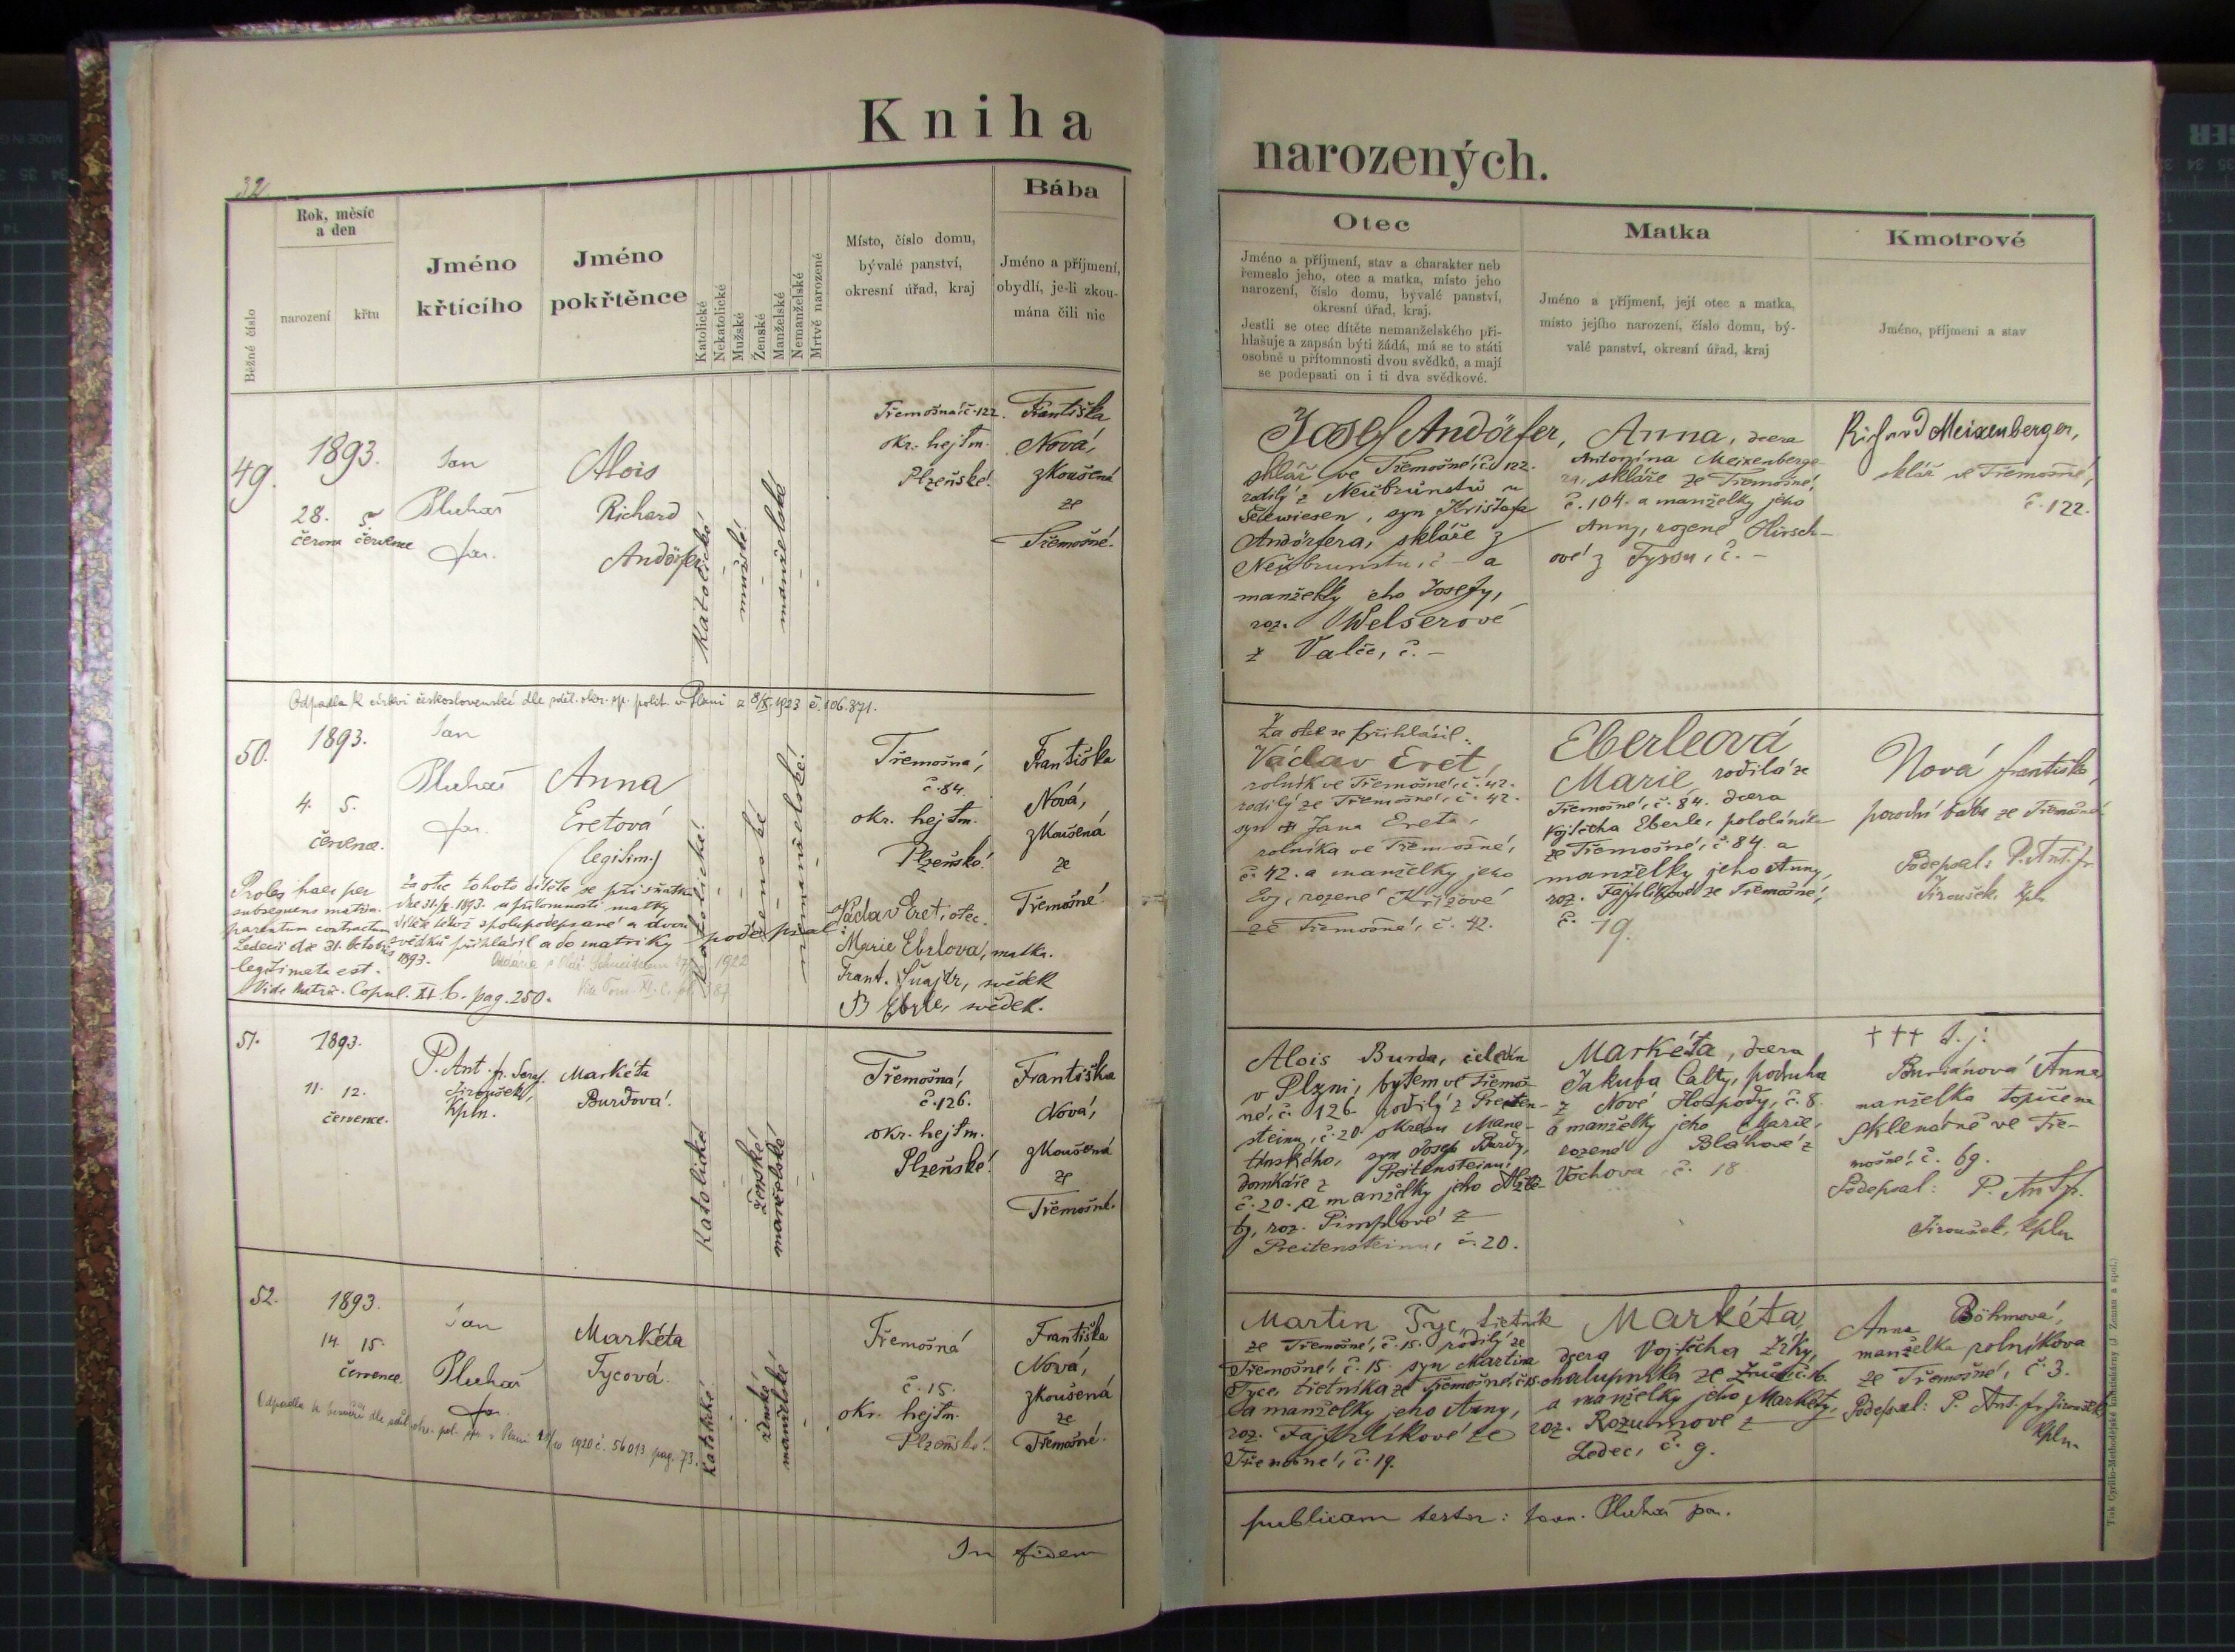 Kniha
narozených.
32.
Běžné číslo
Rok, měsíc
a den
narození
křtu
Jméno
křtícího
Jméno
pokřtěnce
Katolické
Nekatolické
Mužské
Ženské
Manželské
Nemanželské
Mrtvě narozené
Místo, číslo domu,
bývalé panství,
okresní úřad, kraj
Bába
Jméno a příjmení,
obydlí, je-li zkou-
mána čili nic
Otec
Jméno a příjmení, stav a charakter neb
řemeslo jeho, otec a matka, místo jeho
narození, číslo domu, bývalé panství,
okresní úřad, kraj.
Jestli se otec dítěte nemanželského při-
hlašuje a zapsán býti žádá, má se to státi
osobně u přítomnosti dvou svědků, a mají
se podepsati on i ti dva svědkové.
Matka
Jméno a příjmení, její otec a matka,
místo jejího narození, číslo domu, bý-
valé panství, okresní úřad, kraj
Kmotrové
Jméno, příjmení a stav
49.
1893.
28. 5.
června července
Jan
Pluhař
far.
Alois
Richard
Andörfer
Katolické
mužské
manželské
Třemošná č. 122.
okr. hejtm.
Plzeňské.
Františka
Nová,
zkoušená
ze
Třemošné.
Josef Andörfer,
sklář ve Třemošné, č. 122.
rodilý z Neübrünstü u
Andörfera, skláře z
Neübrunstu, č - a
manželky jeho Josefy,
roz. Welserové
z Valče, č. -
Anna, dcera
Antonína Meixenberge-
ra, skláře ze Třemošné,
č. 104. a manželky jeho
Anny, rozené Hirsch-
ové z Tyssu, č. -
Richard Meixenberger,
sklář ve Třemošné,
č. 122.
Odpadla k církvi československé dle sděl. okr. sp. polit. v Plzni z 8/X. 1923 č. 106.871.
50.
1893.
4. 5.
července.
Jan
Pluhař
far.
Anna
Eretová
(legitim.)
Katolické
ženské
nemanželské
Třemošná,
č. 84.
okr. hejtm.
Plzeňské.
Františka
Nová,
zkoušená
ze
Třemošné.
Proles haec per
subsequens matrim.
parentum contractum
Ledecii de 31. Octobris
1893.
legitimata est.
Vide Matric. Copul. XI. b. pag. 250.
Za otce tohoto dítěte se přísňatku
dne 31/X. 1893. u přítomnosti matky
dítěk též spolupodepsané a dvou
svědků přihlásil a do matriky podepsal:
Václav Eret, otec.
Marie Ebrlova, matka.
Frant. Šnajdr, svědek
Eberle, svědek.
Za otce se přihlásil
Václav Eret,
rolník ve Třemošné, č. 42.
rodilý ze Třemošné, č. 42.
syn Jana Ereta,
rolníka ve Třemošné,
č. 42. a manželky jeho
Evy, rozené Křížové
ze Třemošné, č. 42.
Eberleová
Marie, rodilá ze
Třemošné, č. 84. dcera
Vojtěcha Eberle, pololáníka
ze Třemošné, č. 84. a
manželky jeho Anny,
roz. Fajfrlíkové ze Třemošné,
č. 19.
Nová Františka,
porodní bába ze Třemošné
Podepsal: P. Ant. fr.
Jiroušek, kpln
51.
1893.
11. 12.
července.
P. Ant. fr. Seraf.
Jiroušek,
Kpln.
Markéta
Burdová.
Katolické
ženské
manželské
Třemošná,
č. 126.
okr. hejtm.
Plzeňské.
Františka
Nová,
zkoušená
ze
Třemošné.
Alois Burda, čeledín
v Plzni, bytem ve Třemoš-
né, č. 126. rodilý z Preiten-
steinu, č. 20. okresu Mane-
tínského, syn Josefa Burdy,
domkáře z Preitensteinu,
č. 20. a manželky jeho Alžbě-
ty, roz. Pimplové z
Preitensteinu, č. 20.
Markéta, dcera
Jakuba Calty, podruha
z Nové Hospody, č. 8.
a manželky jeho Marie,
rozené Bláhové z
Vochova č. 18
††† t. j:
Buriánová Anna
manželka topičena
sklenárně ve Tře-
mošné, č. 69.
Podepsal: P. Ant. fr.
Jiroušek, kpln
52.
1893.
14. 15.
července.
Jan
Pluhař
far.
Markéta
Tycová.
Katolické
ženské
manželské
Třemošná
č. 15.
okr. hejtm.
Plzeňské.
Františka
Nová,
zkoušená
ze
Třemošné.
Odpadla k bezvěří dle sděl. okr. pol. spr. v Plzni 1920 č. 56013 pag. 73.
Martin Tyc, třetník
ze Třemošné, č. 15. rodilý ze
Třemošné, č. 15. syn Martina
Tyce, třetníka ze Třemošné, č. 15.
a manželky jeho Anny,
roz. Fajfrlíkové ze
Třemošné, č. 19.
Markéta,
dcera Vojtěcha Zrky,
chalupníka ze Zruče č. 16.
a manželky jeho Markéty,
roz. Rozumové z
Ledec, č. 9.
Anna Böhmová,
manželka rolníkova
ze Třemošné, č. 3.
Podepsal: P. Ant. fr. Jiroušek
kpln.
In fidem
publicam testor: Joan. Pluhař par.
Tisk Cyrillo-Methodějské knihtiskárny (J. Zeman a spol.)